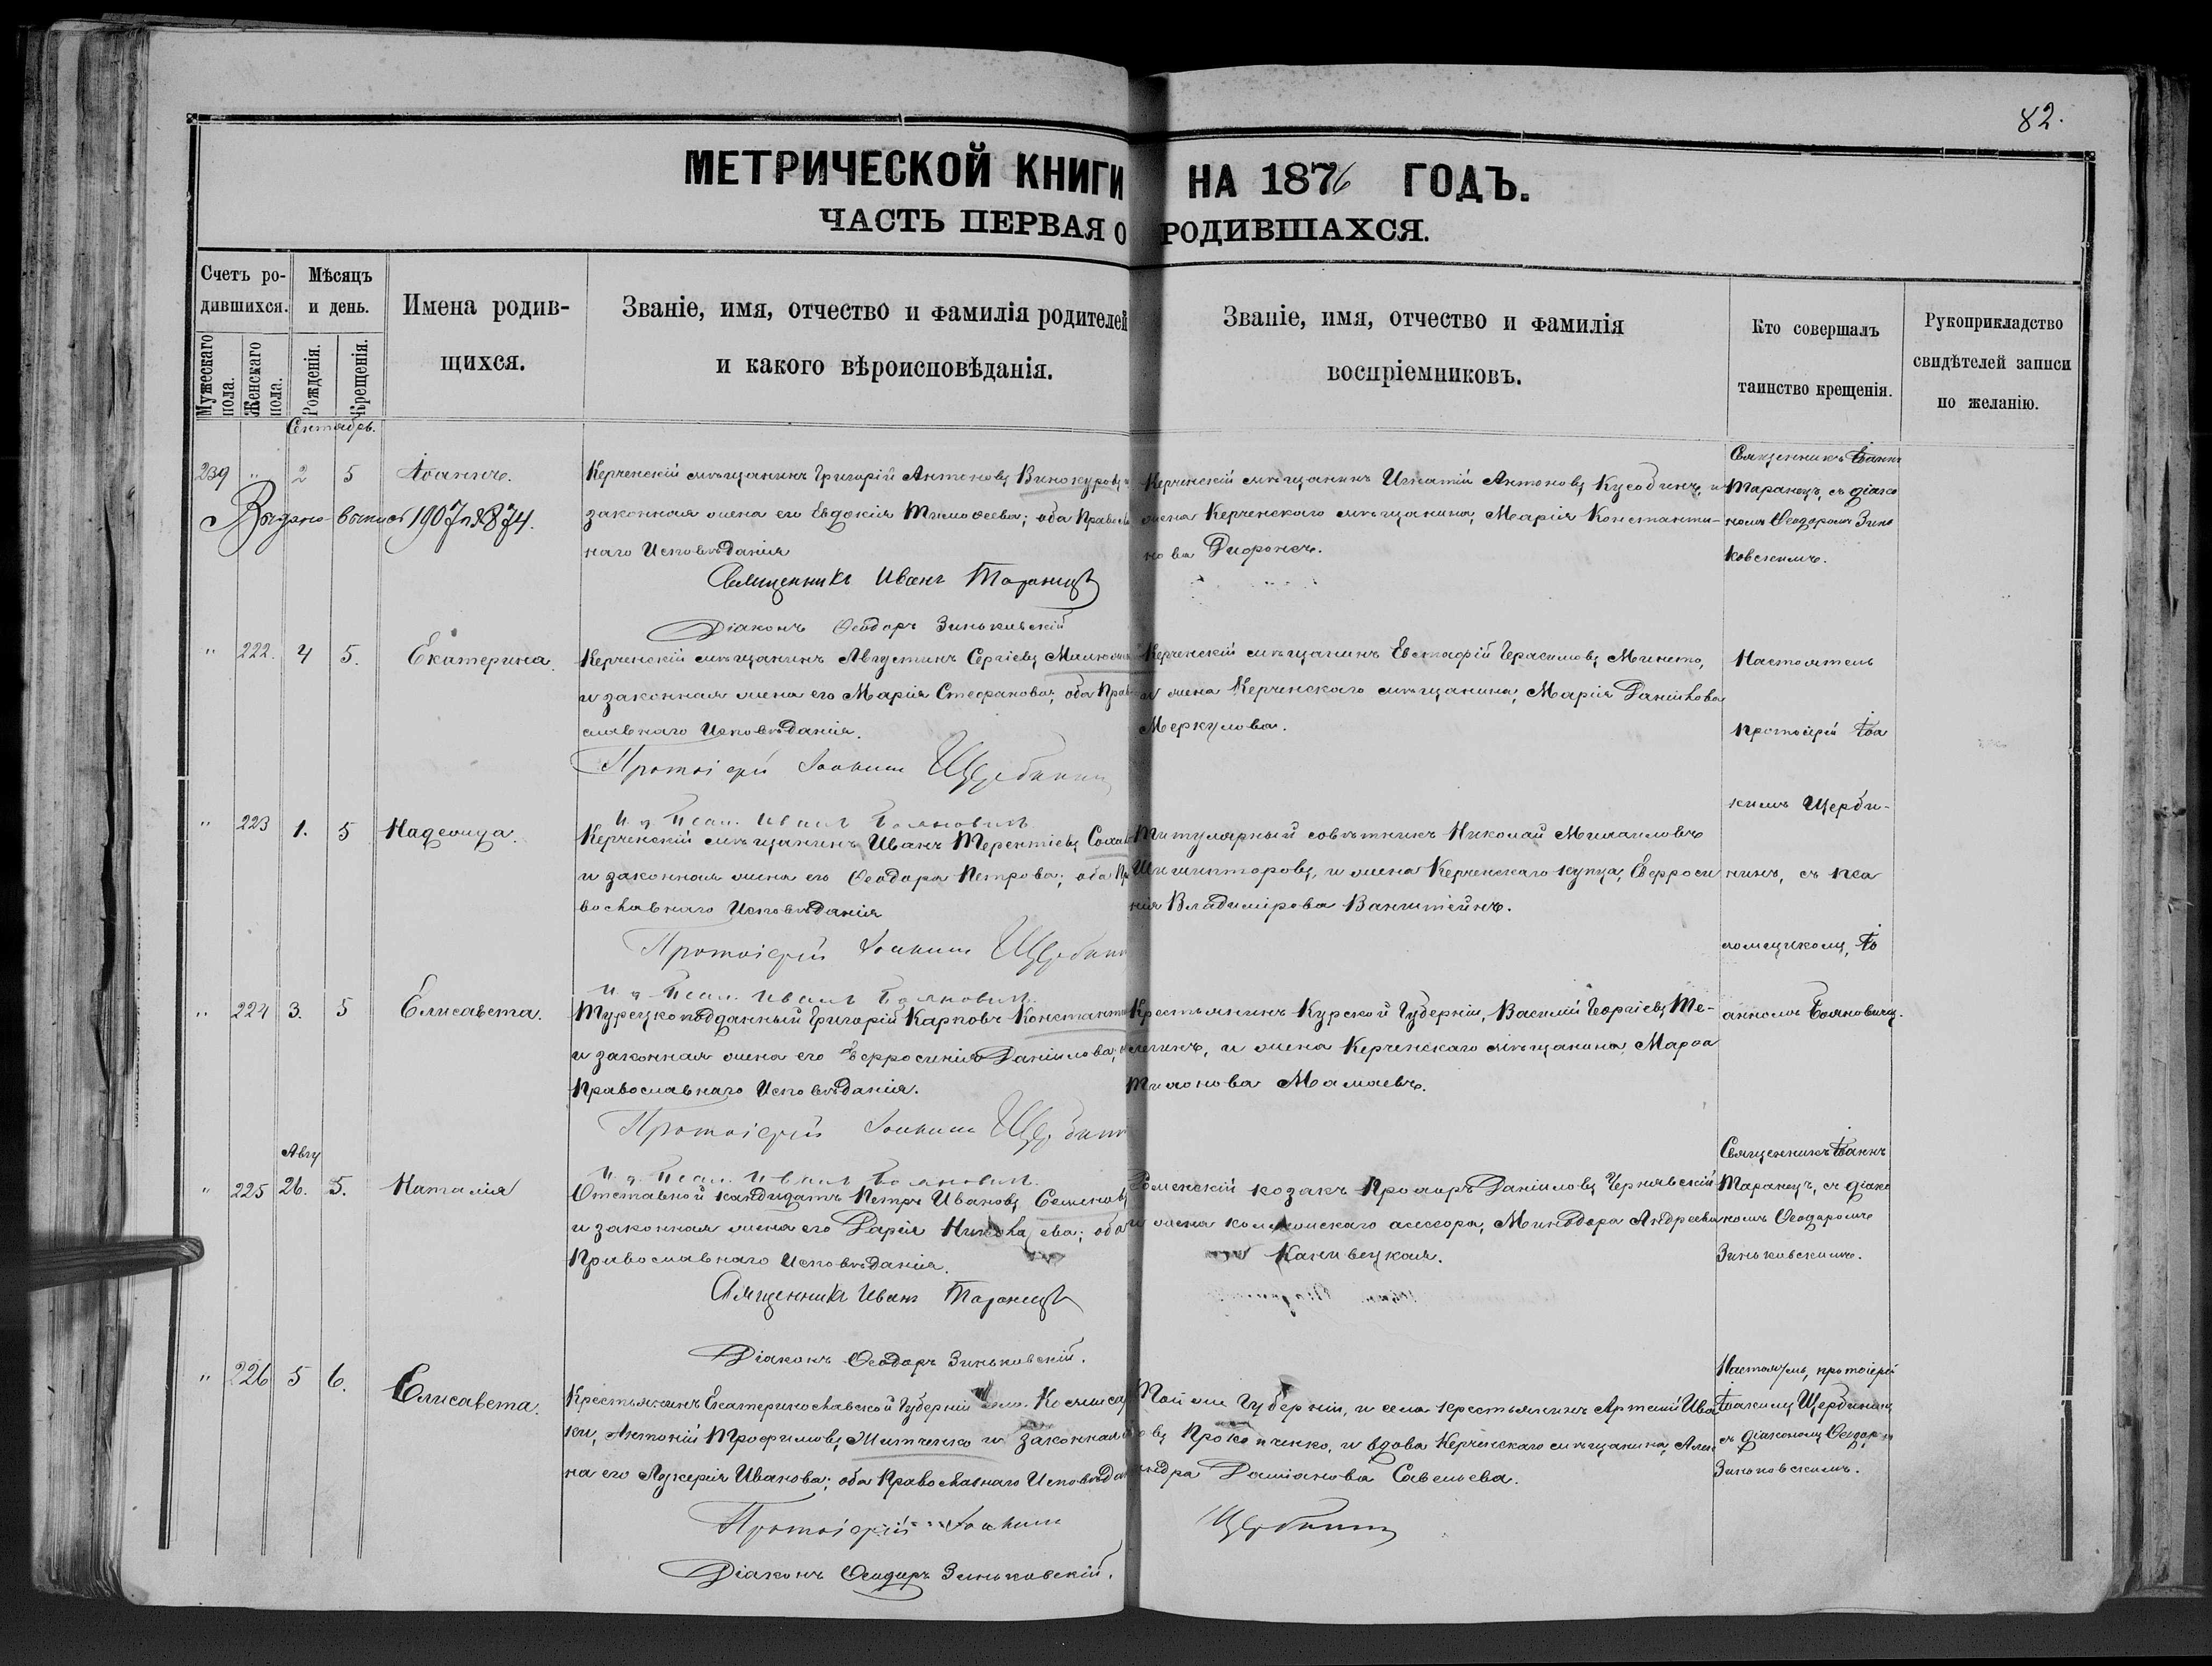 82.
МЕТРИЧЕСКОЙ КНИГИ НА 1876 ГОДЪ.
ЧАСТЬ ПЕРВАЯ О РОДИВШАХСЯ.
Счетъ родившихся.
Мужескаго пола.
Женскаго пола.
Мѣсяцъ и день.
Рожденія.
Крещенія.
Имена родившихся.
Званіе, имя, отчество и фамилія родителей
и какого вѣроисповѣданія.
Званіе, имя, отчество и фамилія
воспріемниковъ.
Кто совершалъ
таинство крещенія.
Рукоприкладство
свидѣтелей записи
по желанію.
Сентябрь.
239 " 2 5 Іоаннъ.
Выдана выпись 1907 г. № 874.
Керченскій мѣщанинъ Григорій Антоновъ Винокуровъ и
законная жена его Евдокія Тимоѳеева; оба Правосла
наго Исповѣданія
Священникъ Иванъ Таранецъ
Діаконъ Ѳеодоръ Зиньковскій
Керченскій мѣщанинъ Игнатій Антоновъ и
жена Керченскаго мѣщанина, Марія Константи-
нова
Священникъ Іоаннъ
Таранецъ, съ діако
номъ Ѳеодоромъ Зинь
ковскимъ.
" 222. 4 5. Екатерина.
Керченскій мѣщанинъ Августинъ Сергіевъ
и законная жена его Марія Стефанова; оба Прав
славнаго Исповѣданія.
Протоіерей Іоакимъ Щербинин
И. д. Псал. Иванъ Бояновичъ
Керченскій мѣщанинъ Евстафій Герасимовъ
и жена Керченскаго мѣщанина, Марія Данилова
Меркулова.
Настоятель
протоіерей Іоа
кимъ Щерби-
нинъ, съ пса
ломщикомъ Іо
анномъ Бояновичъ.
" 223 1. 5 Надежда.
Керченскій мѣщанинъ Иванъ Терентіевъ
и законная жена его Ѳеодора Петрова; оба Пр
вославнаго Исповѣданія
Протоіерей Іоакимъ Щербинин
И. д. Псал. Иванъ Бояновичъ.
Титулярный совѣтникъ Николай Михаиловъ
и жена Керченскаго купца, Евфроси
нія Владимірова Ванштейнъ.
" 224 3. 5 Елисавета.
Турецкоподданный Григорій Карповъ Константи
и законная жена его Евфросинія Даніилова;
Православнаго Исповѣданія.
Протоіерей Іоакимъ Щербинин
И. д. Псал. Иванъ Бояновичъ.
Крестьянинъ Курской Губерніи, Василій Георгіевъ Те-
и жена Керченскаго мѣщанина, Марѳа
Тихонова Мамаевъ.
Авгу
" 225 26. 5. Наталія
Отставной кандидатъ Петръ Ивановъ Семеновъ
и законная жена его Дарія Николаева; оба
Православнаго Исповѣданія.
Священникъ Иванъ Таранецъ
Діаконъ Ѳеодоръ Зиньковскій.
Роменскій козакъ Прохоръ Даніиловъ Чернявскій
и жена асессора, Минодора Андреева
Канивецкая.
Священникъ Іоаннъ
Таранецъ, съ діако
номъ Ѳеодоромъ
Зиньковскимъ.
" 226 5 6. Елисавета.
Крестьянинъ Екатеринославской Губерніи села Комисаро
ки, Антоній Трофимовъ Митченко и законная
на его Лукерія Иванова; оба Православнаго Исповѣда
Протоіерей Іоакимъ Щербининъ
Діаконъ Ѳеодоръ Зиньковскій.
Той же Губерніи, и села крестьянинъ Артемій Ива
овъ Прокопченко, и вдова Керченскаго мѣщанина, Алек
андра Даміанова Савельева.
Настоятель, протоіерей
Іоакимъ Щербининъ
съ діакономъ Ѳеодоро
Зиньковскимъ.